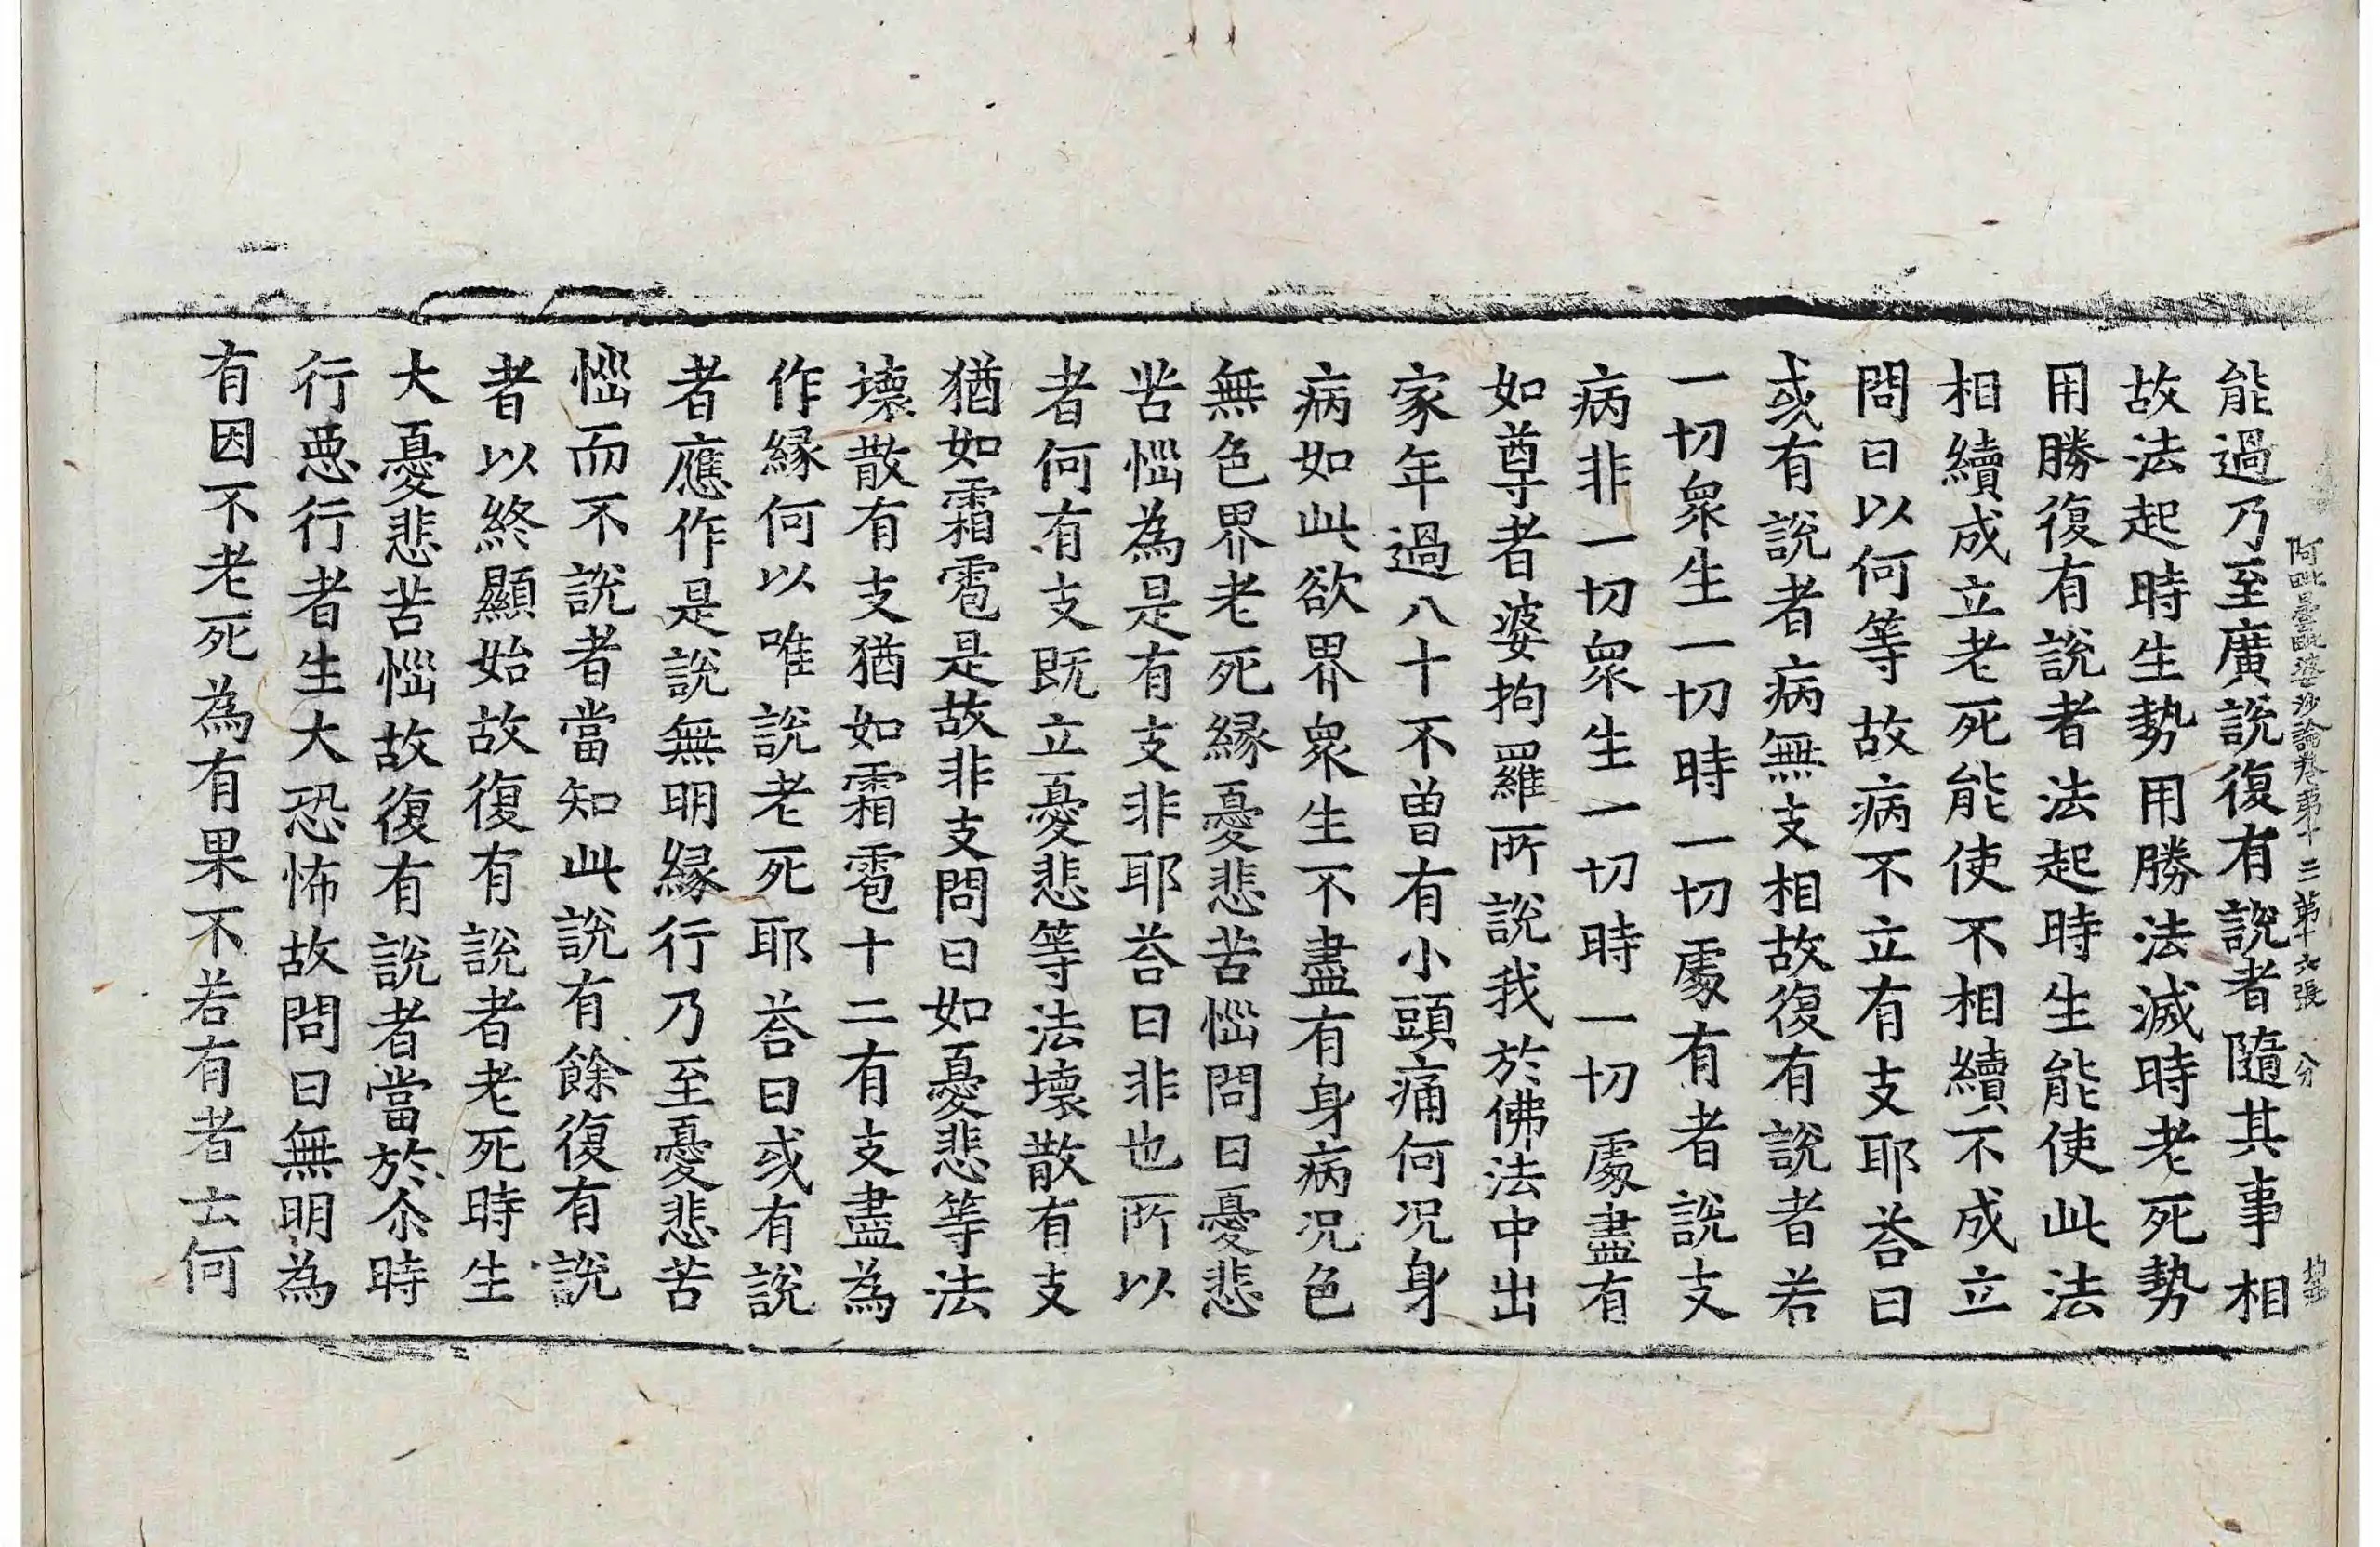 阿毗曇毗婆沙論卷第十三 第十六張 分
能過乃至廣說復有說者隨其事相
故法起時生勢用勝法滅時老死勢
用勝復有說者法起時生能使此法
相續成立老死能使不相續不成立
問曰以何等故病不立有支耶荅曰
或有說者病無支相故復有說者若
一切衆生一切時一切處有者說支
病非一切衆生一切時一切處盡有
如尊者婆拘羅所說我於佛法中出
家年過八十不曾有小頭痛何况身
病如此欲界衆生不盡有身病况色
無色界老死緣憂悲苦惱問曰憂悲
苦惱為是有支非耶荅曰非也所以
者何有支既立憂悲等法壞散有支
猶如霜雹是故非支問曰如憂悲等法
壞散有支猶如霜雹十二有支盡為
作緣何以唯說老死耶荅曰或有說
者應作是說無明緣行乃至憂悲苦
惱而不說者當知此說有餘復有說
者以終顯始故復有說者老死時生
大憂悲苦惱故復有說者當於尒時
行惡行者生大恐怖故問曰無明為
有因不老死為有果不若有者云何